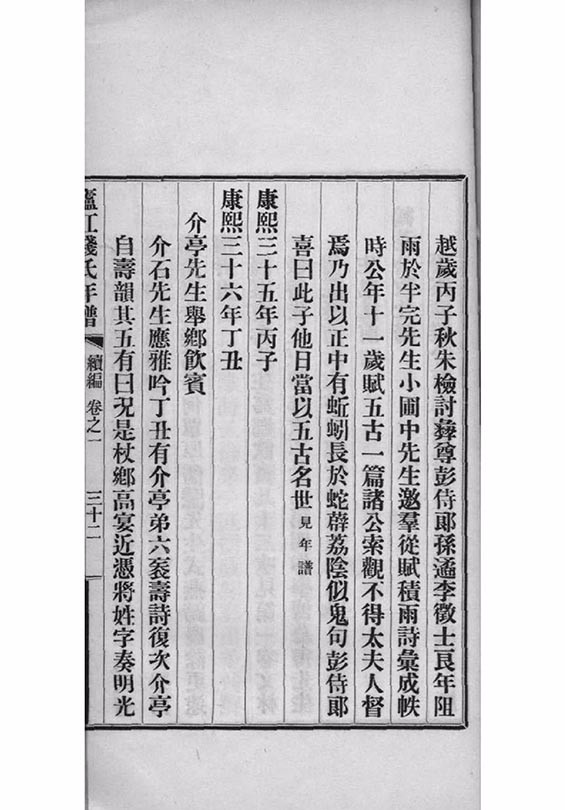 越歲丙子秋朱檢討彝尊彭侍郎孫遹李徵士良年阻
雨於半完先生小圃中先生邀羣從賦積雨詩彙成帙
時公年十一歲賦五古一篇諸公索觀不得太夫人督
焉乃出以正中有蚯蚓長於蛇薜荔陰似鬼句彭侍郎
喜曰此子他日當以五古名世見年譜
康熙三十五年丙子
康熙三十六年丁丑
介亭先生舉鄉飲賓
介石先生應雅吟丁丑有介亭弟六袠壽詩復次介亭
自壽韻其五有曰況是杖鄉高宴近憑將姓字奏明光
廬江錢氏年譜 續編 卷之一 三十二